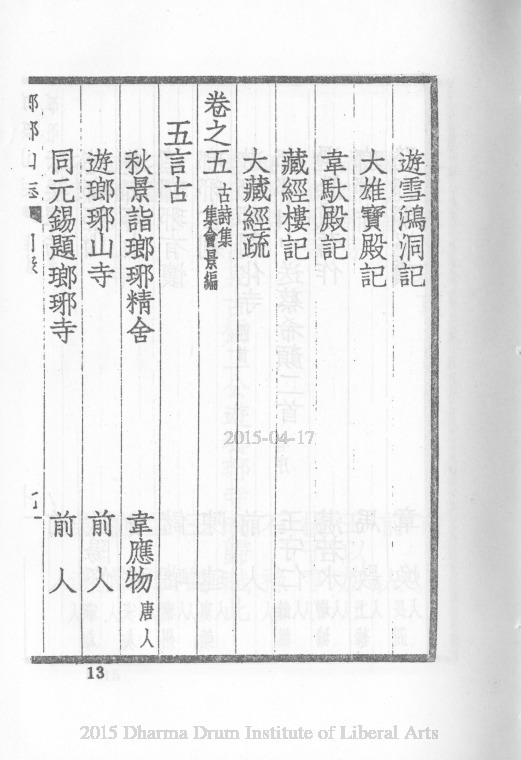 遊雪鴻洞記
大雄寶殿記
韋馱殿記
藏經樓記
大藏經疏
卷之五 古詩集 集會景編
五言古
秋景詣瑯琊精舍 韋應物 唐人
遊瑯琊山寺 前人
同元錫題瑯琊寺 前人
13
2015-04-17
2015 Dharma Drum Institute of Liberal Arts